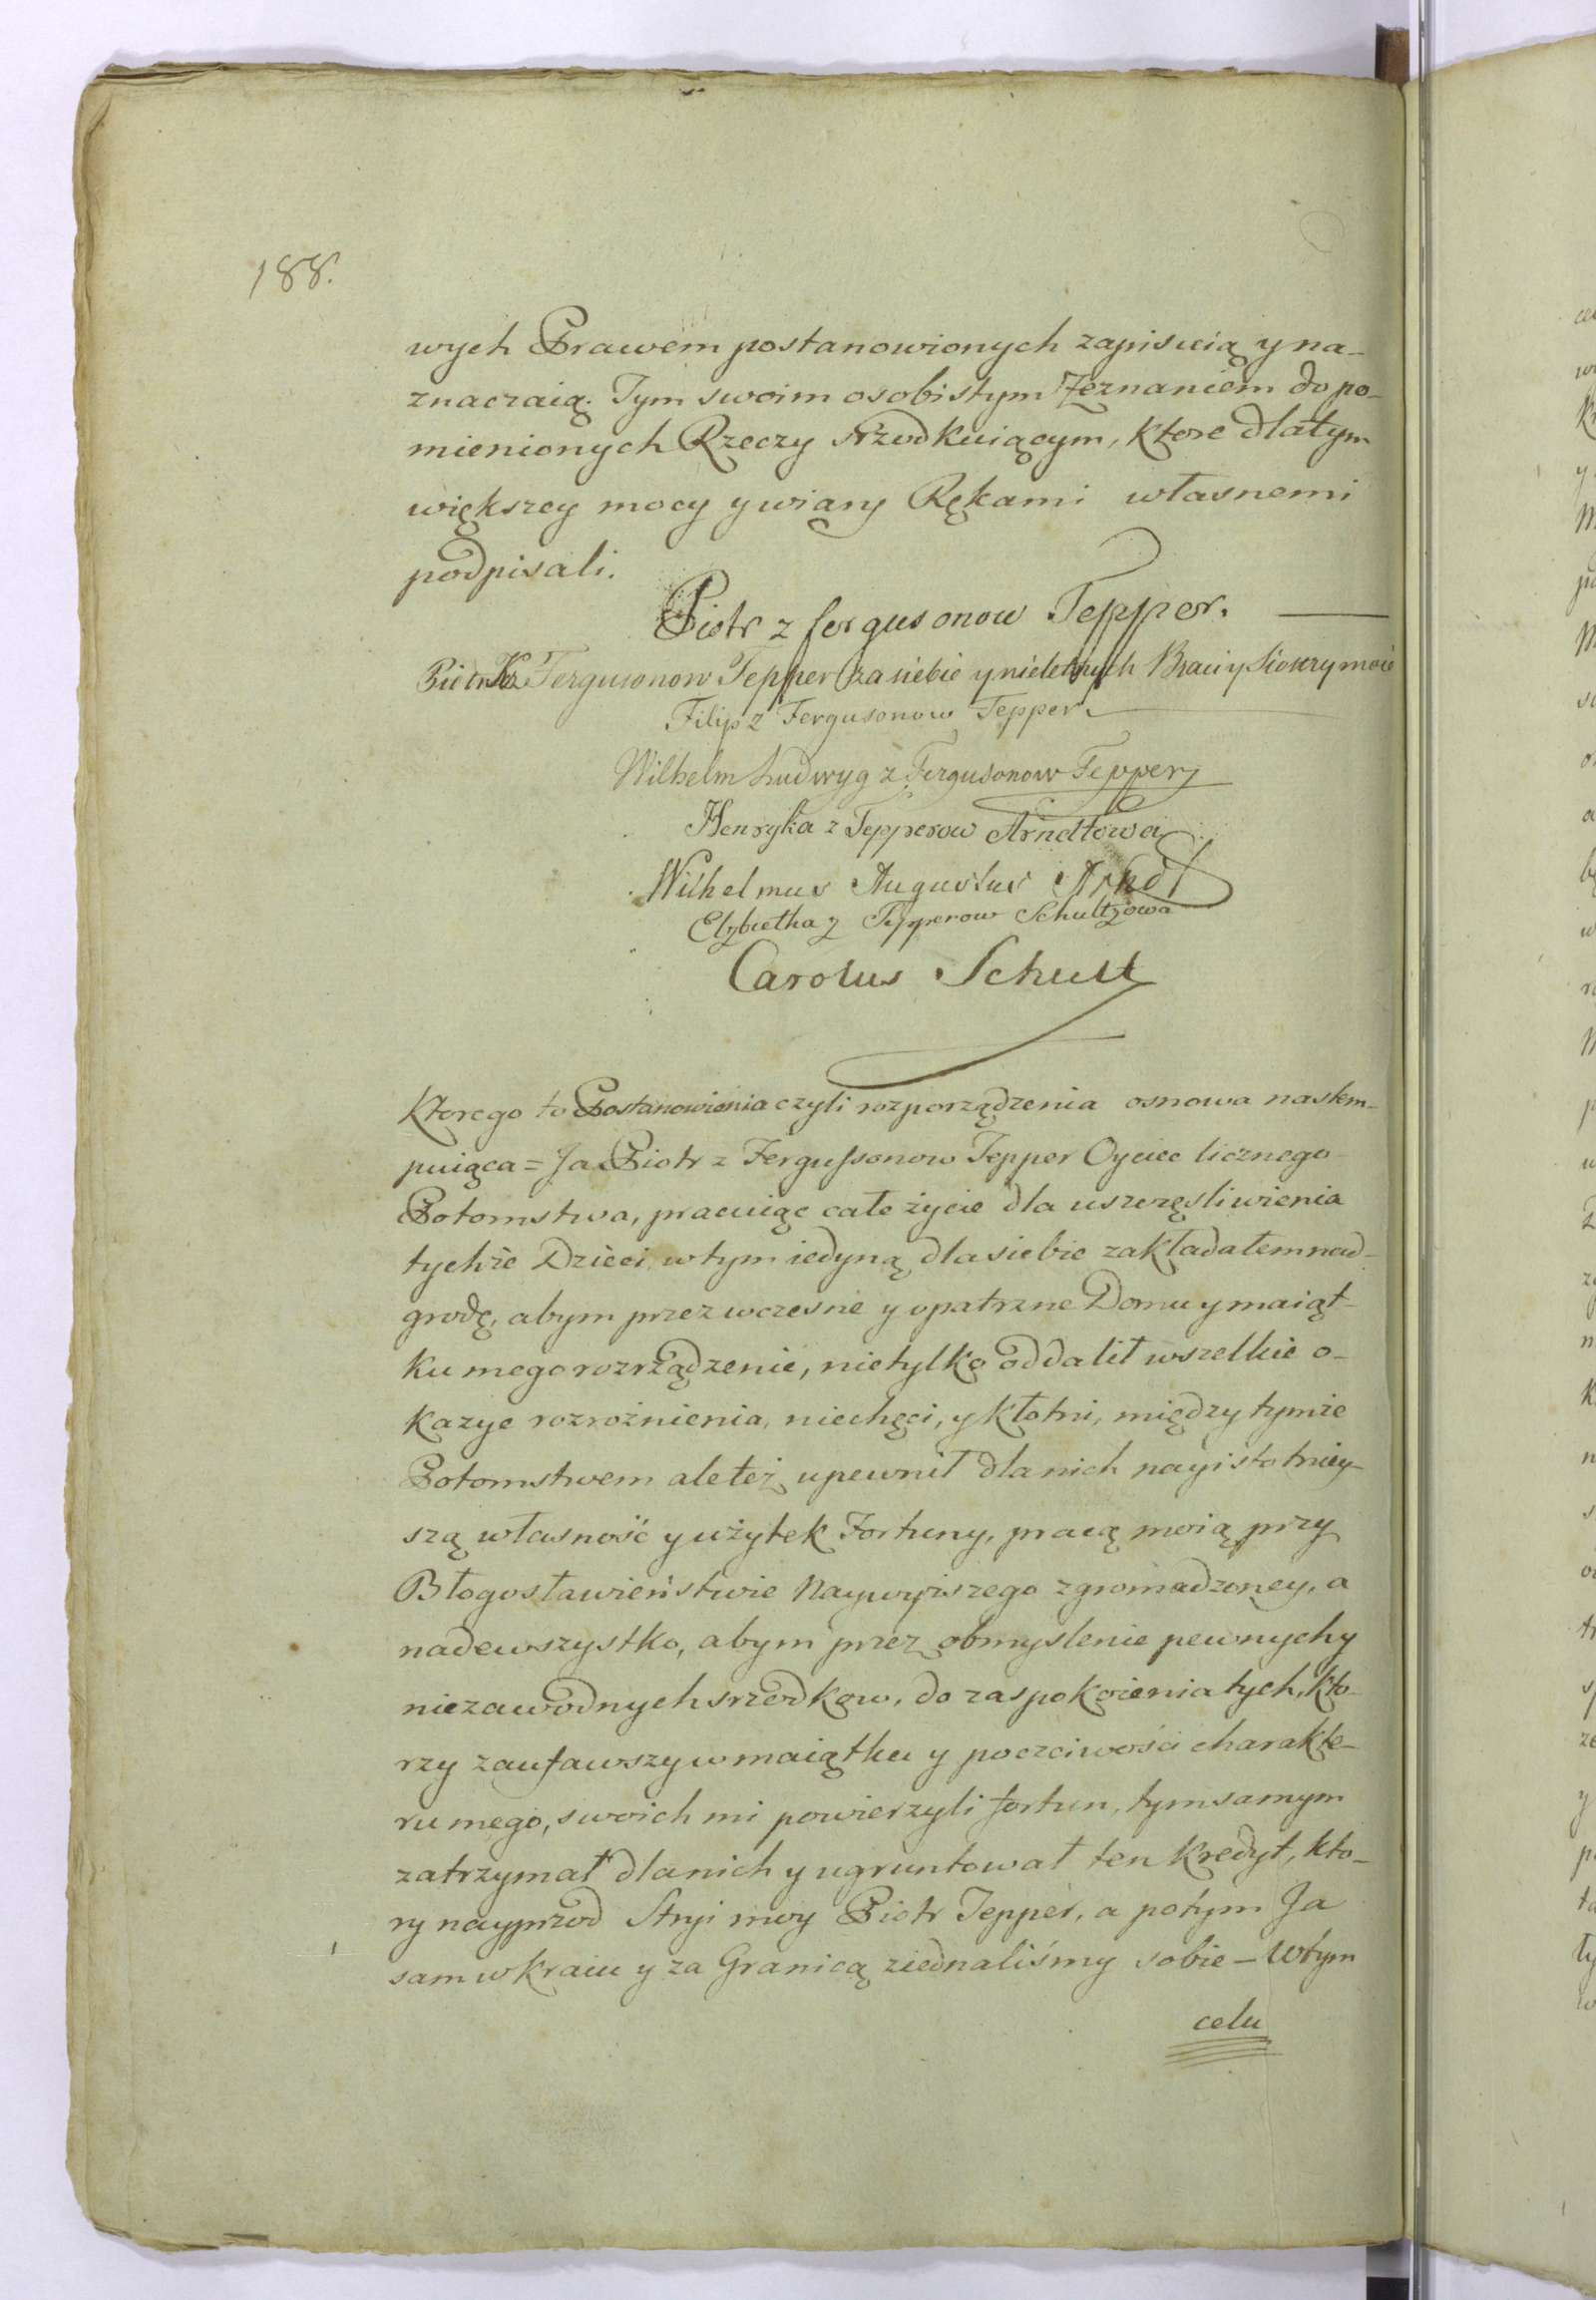 188.
wych Prawem postanowionych zapisuią y na-
znaczaią. Tym swoim osobistym Zeznaniem do po-
mienionych Rzeczy srzodkuiącym, ktore dla tym
większey mocy y wiary Rękami własnemi
podpisali.
Piotr z fergusonow Tepper.
Piotr z Fergusonow Tepper za siebie y nieletnych Braci y Siostry moie
Filip z Fergusonow Tepper
Wilhelm Ludwyg z Fergusonow Tepper
Henryka z Tepperow Arndtowa
Wilhelmus Augustus Arndt
Elzbietha z Tepperow Schultzowa
Carolus Schultz
Ktorego to Postanowienia czyli rozporządzenia osnowa nastem-
puiąca = Ja Piotr z Fergussonow Tepper Oyciec licznego
Potomstwa, pracuiąc całe życie dla uszczęsliwienia
tychże Dzieci w tym iedyną dla siebie zakładałem nad-
grodę, abym przez wczesne y opatrzne Domu y maiąt-
ku mego rozrządzenie, nie tylko oddalił wszelkie o-
kazye rozrożnienia, niechęci, y kłotni, między tymże
Potomstwem ale też upewnił dla nich nayistotniey-
szą własność y użytek Fortuny, pracą moią przy
Błogosławieństwie Naywyższego zgromadzoney, a
nadewszystko, abym przez obmyslenie pewnych y
niezawodnych srzodkow, do zaspokoienia tych, kto-
rzy zaufawszy w maiątku y poczciwości charakte-
ru mego, swoich mi powierzyli fortun, tym samym
zatrzymał dla nich y ugruntował ten kredyt, kto-
ry nayprzod Stryi moy Piotr Tepper, a potym Ja
sam w kraiu y za Granicą ziednaliśmy sobie – W tym
celu